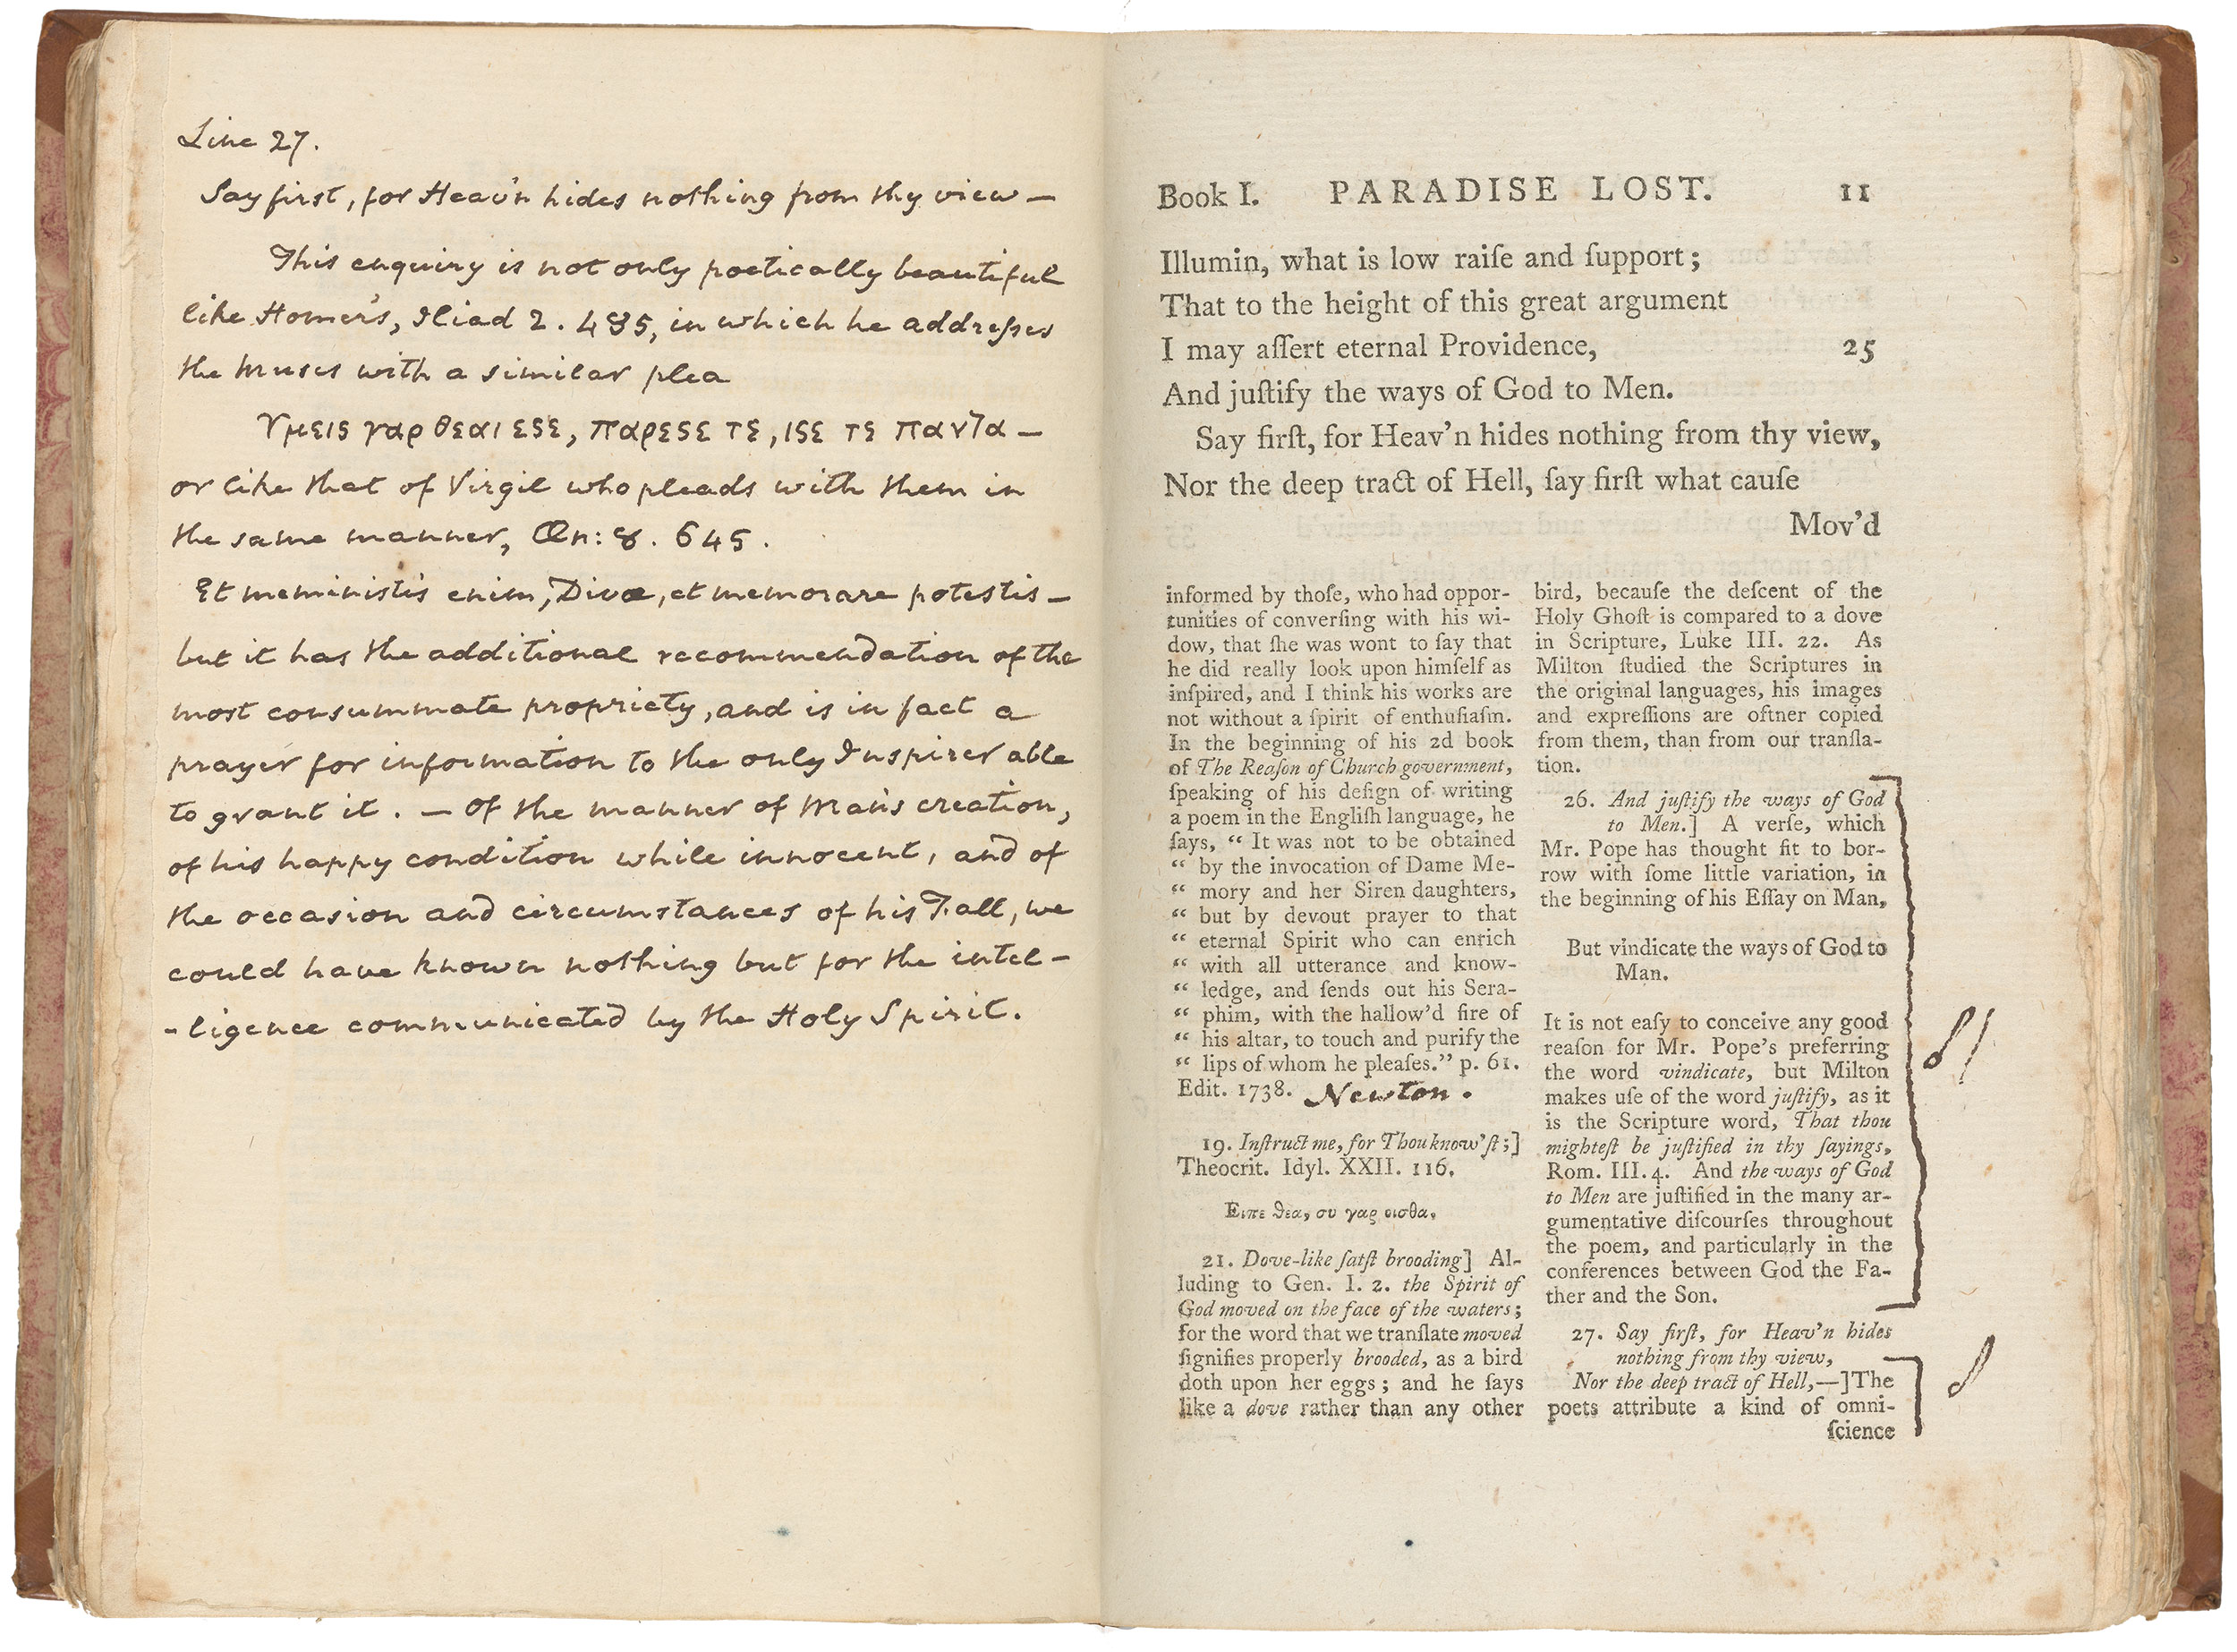 Line 27.
Say first, for Heav'n hides nothing from thy view —
This enquiry is not only poetically beautiful
like Homer's, Iliad 2. 485, in which he addreſses
the Muses with a similar plea
Υμεις γαρ θεαι εϛε, παρεϛε τε, ιϛε τε πανTα —
or like that of Virgil who pleads with them in
the same manner, Æn: 8. 645.
Et meministis enim, Divæ, et memorare potestis —
but it has the additional recommendation of the
most consummate propriety, and is in fact a
prayer for information to the only Inspirer able
to grant it. — Of the manner of Man's creation,
of his happy condition while innocent, and of
the occasion and circumstances of his Fall, we
could have known nothing but for the intel-
-ligence communicated by the Holy Spirit.
Book I. PARADISE LOST. 11
Illumin, what is low raiſe and ſupport;
That to the height of this great argument
I may aſſert eternal Providence, 25
And juſtify the ways of God to Men.
Say firſt, for Heav'n hides nothing from thy view,
Nor the deep tract of Hell, ſay firſt what cauſe
Mov'd
informed by thoſe, who had oppor-
tunities of converſing with his wi-
dow, that ſhe was wont to ſay that
he did really look upon himſelf as
inſpired, and I think his works are
not without a ſpirit of enthuſiaſm.
In the beginning of his 2d book
of The Reaſon of Church government,
ſpeaking of his deſign of writing
a poem in the Engliſh language, he
ſays, “ It was not to be obtained
“ by the invocation of Dame Me-
“ mory and her Siren daughters,
“ but by devout prayer to that
“ eternal Spirit who can enrich
“ with all utterance and know-
“ ledge, and ſends out his Sera-
“ phim, with the hallow'd fire of
“ his altar, to touch and purify the
“ lips of whom he pleaſes.” p. 61.
Edit. 1738. Newton.
19. Inſtruct me, for Thou know'ſt;]
Theocrit. Idyl. XXII. 116.
Ειπε θεα, συ γαρ οισθα.
21. Dove-like ſatſt brooding] Al-
luding to Gen. I. 2. the Spirit of
God moved on the face of the waters;
for the word that we tranſlate moved
ſignifies properly brooded, as a bird
doth upon her eggs; and he ſays
like a dove rather than any other
bird, becauſe the deſcent of the
Holy Ghoſt is compared to a dove
in Scripture, Luke III. 22. As
Milton ſtudied the Scriptures in
the original languages, his images
and expreſſions are oftner copied
from them, than from our tranſla-
tion.
26. And juſtify the ways of God
to Men.] A verſe, which
Mr. Pope has thought fit to bor-
row with ſome little variation, in
the beginning of his Eſſay on Man,
But vindicate the ways of God to
Man.
It is not eaſy to conceive any good
reaſon for Mr. Pope's preferring
the word vindicate, but Milton
makes uſe of the word juſtify, as it
is the Scripture word, That thou
mighteſt be juſtified in thy ſayings,
Rom. III. 4. And the ways of God
to Men are juſtified in the many ar-
gumentative diſcourſes throughout
the poem, and particularly in the
conferences between God the Fa-
ther and the Son.
27. Say firſt, for Heav'n hides
nothing from thy view,
Nor the deep tract of Hell,—]The
poets attribute a kind of omni-
ſcience